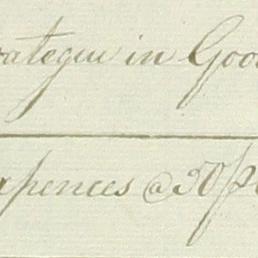 rategue in Goo
xpences @ 50 p